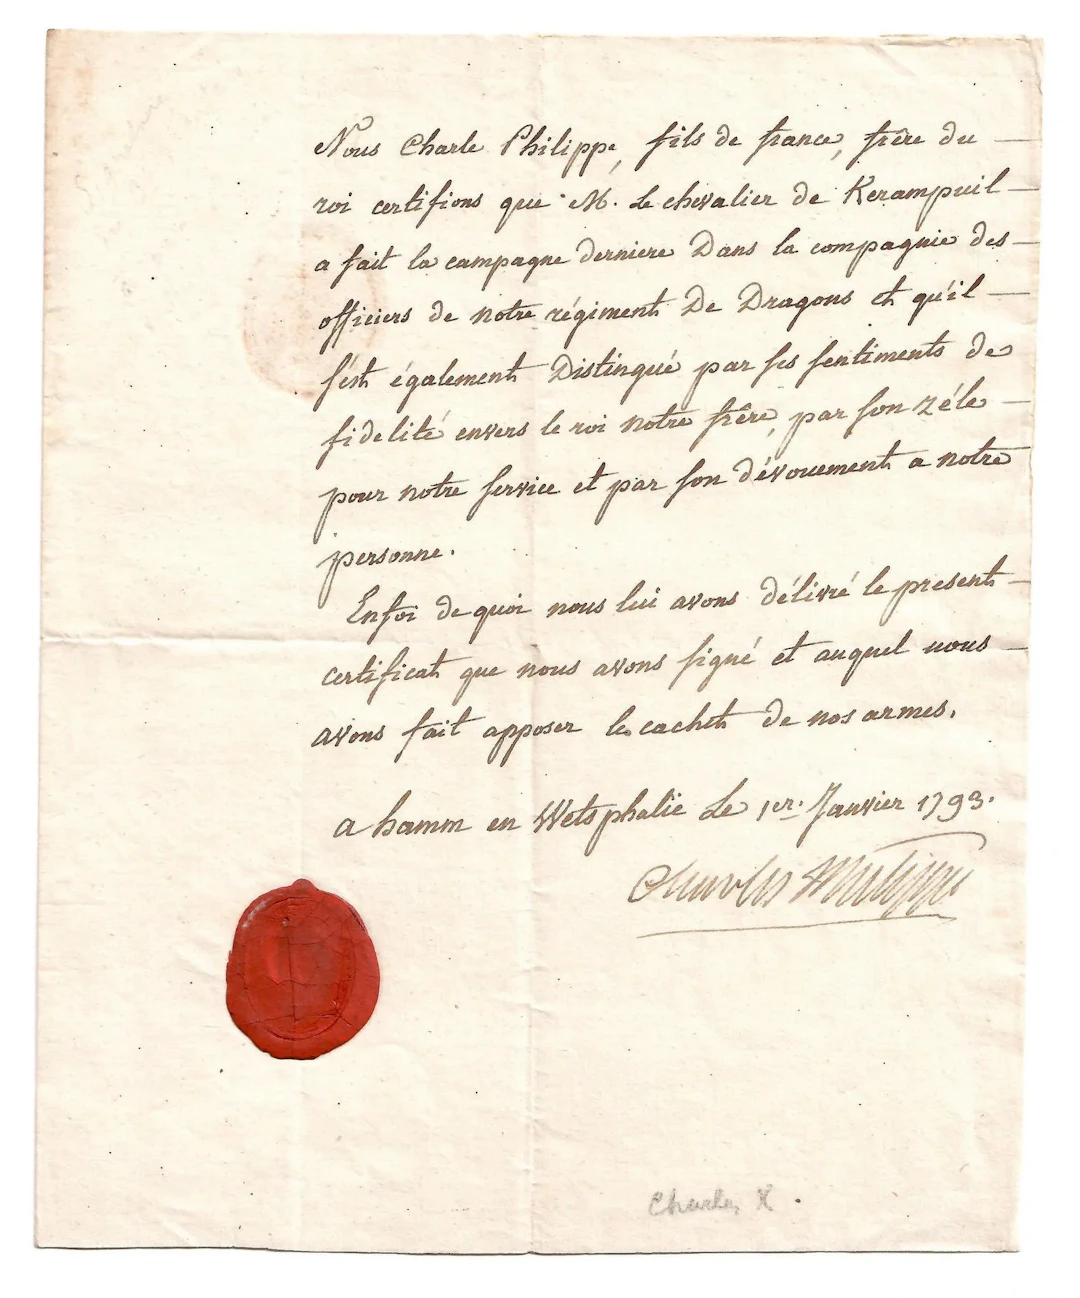 Nous Charle Philippe, fils de france, frère du —
roi certifions que M. Le chevalier de Kerampuil —
a fait la campagne derniere Dans la compagnie des —
officiers de notre régiment De Dragons et qu'il —
s'est également Distingué par ses sentiments de
fidelité envers le roi notre frère, par son zéle —
pour notre service et par son dévouement a notre
personne.
Enfoi de quoi nous lui avons délivré le present —
certificat que nous avons signé et auquel nous —
avons fait apposer le cachet de nos armes.
a hamm en Wetsphalie Le 1er. Janvier 1793.
Charles Philippe
Charles X.